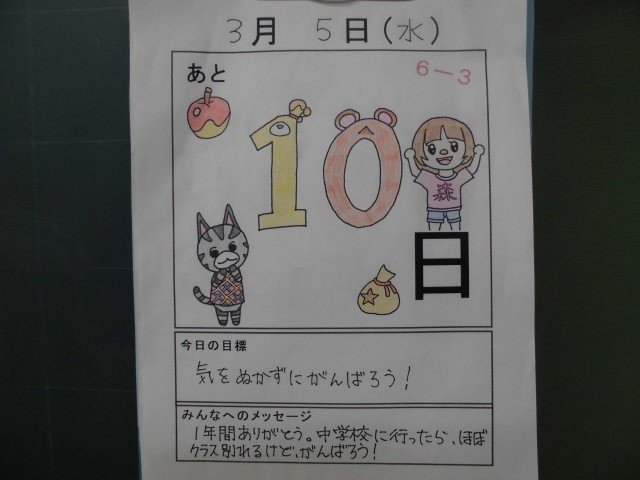 3月 5日(水)
あと
6-3
10
森
日
今日の目標
気をぬかずにがんばろう!
みんなへのメッセージ
1年間ありがとう。中学校に行ったら、ほぼ
クラス別れるけど、がんばろう!